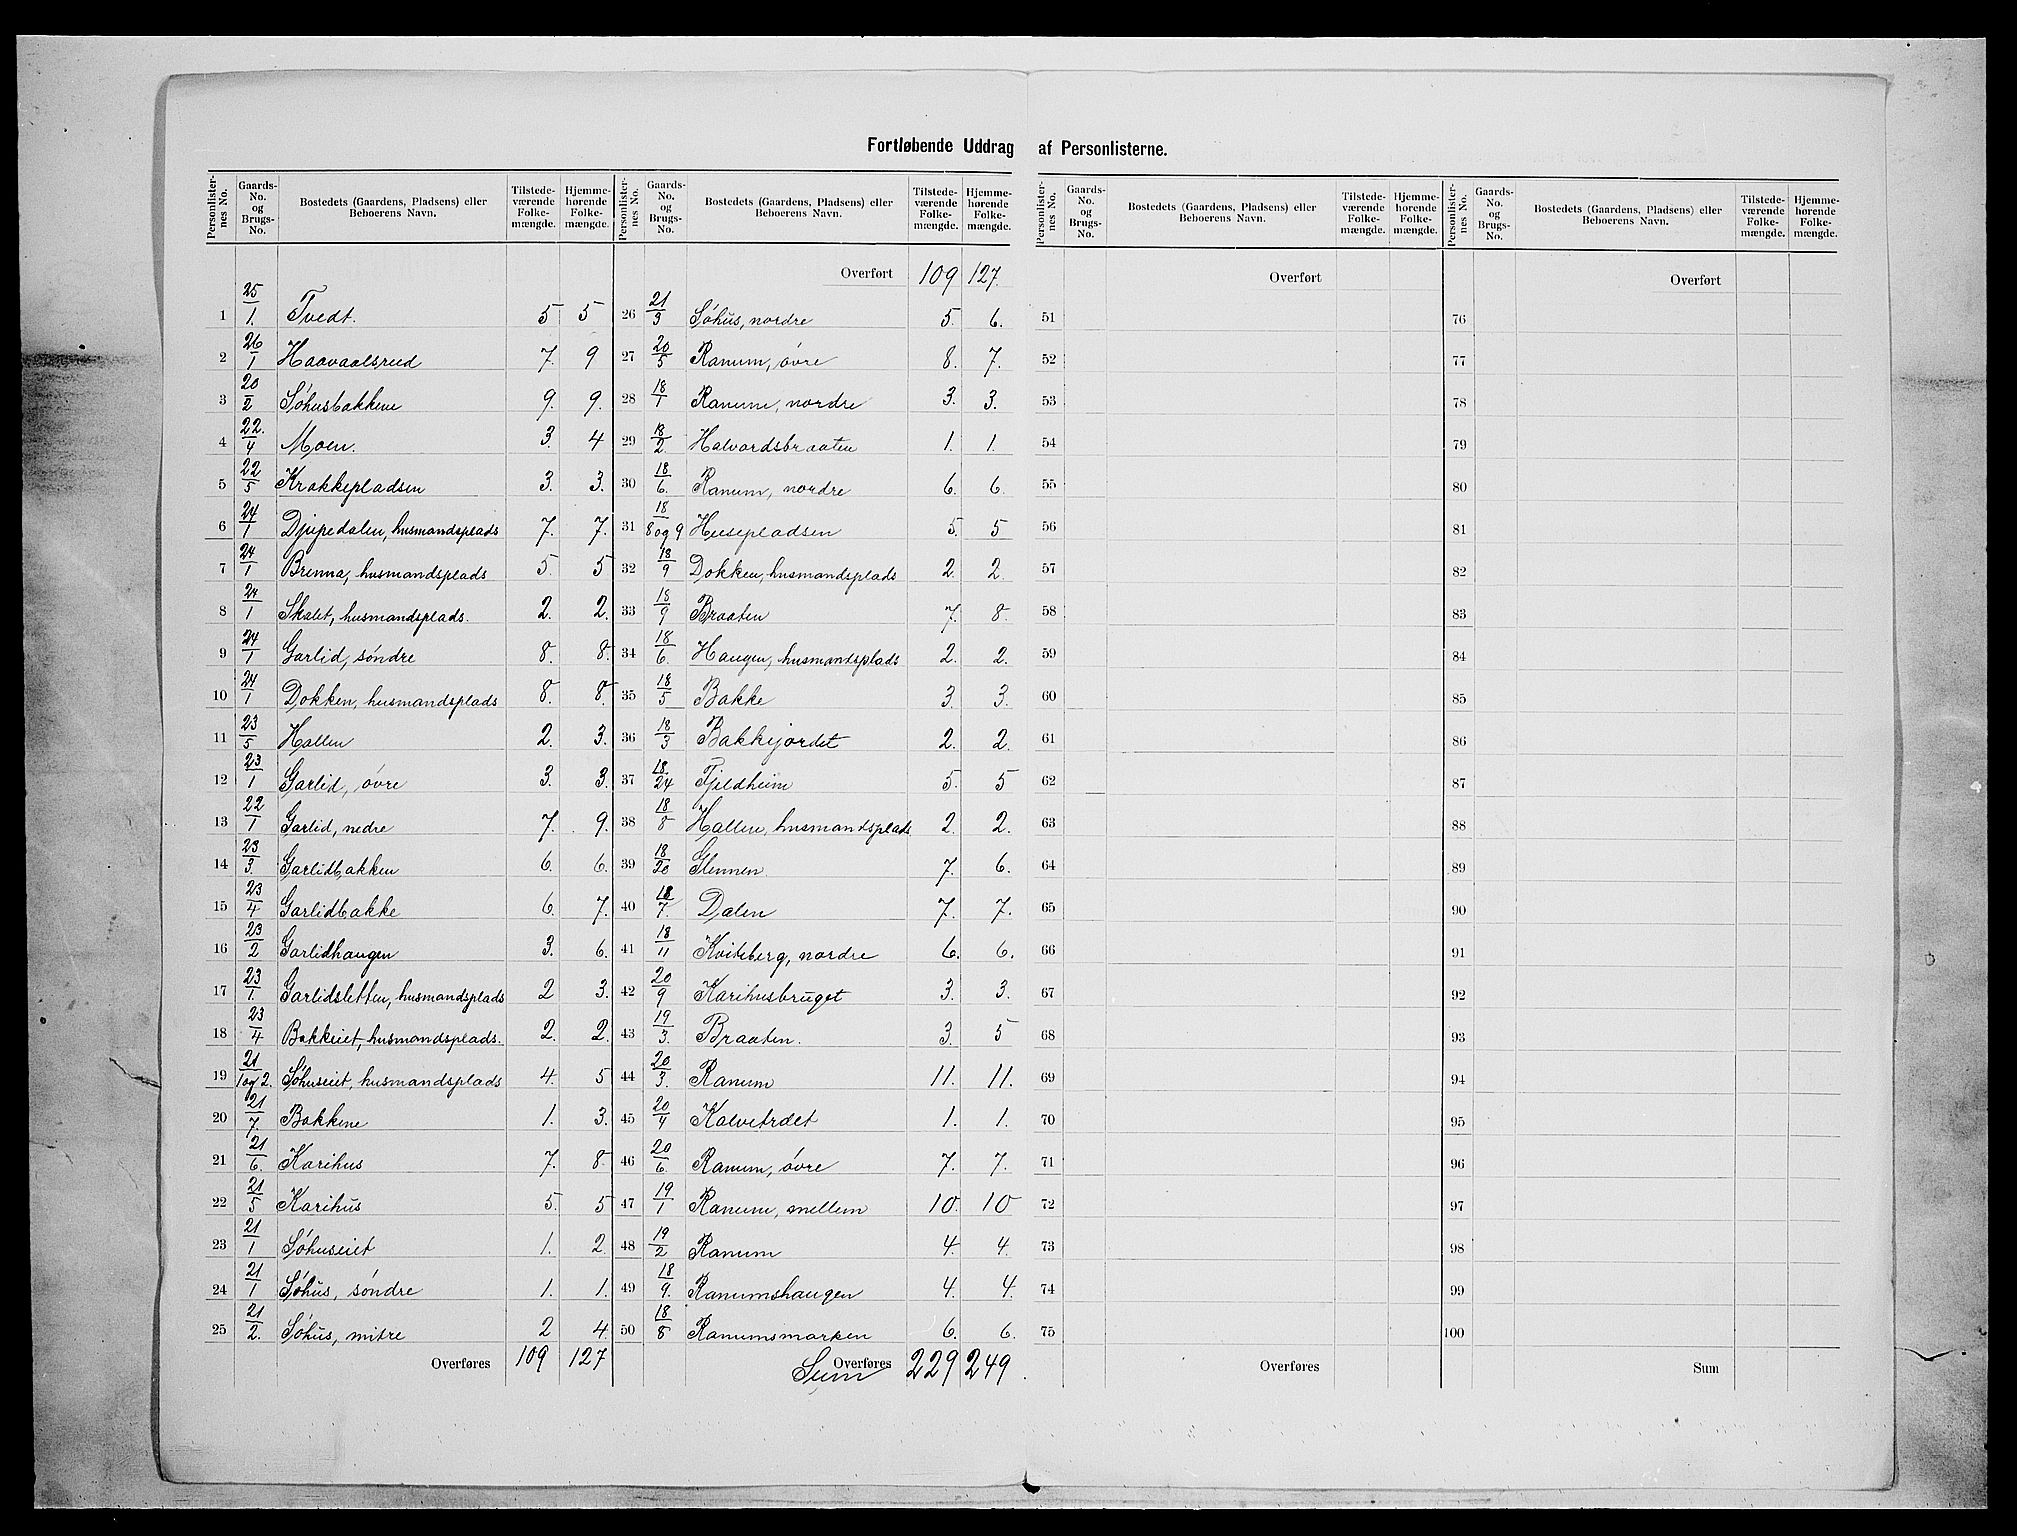 Fortløbende Uddrag af Personlisterne.
Personlister-nes No. | Gaards-No. og Brugs-No. | Bostedets (Gaardens, Pladsens) eller Beboerens Navn. | Tilstede-værende Folke-mængde. | Hjemme-hørende Folke-mængde.
1 25/1. Tvedt. 5 5
2 26/1 Haavaalsrud 7. 9
3 20/2 Søhusbakkene 9. 9.
4 22./4 Moen. 3. 4
5 22/5 Krakkepladsen 3. 3.
6 24/1 Djupedalen, husmandsplads 7. 7.
7 24/1 Brenna, husmandsplads 5. 5
8 24/1 Skalet, husmandsplads. 2. 2.
9 24/1 Garlid, søndre 8. 8.
10 24/1 Dokken, husmandsplads 8. 8.
11 23/5 Hallen 2. 3.
12 23/1 Garlid, øvre 3. 3.
13 22/1 Garlid, nedre 7. 9.
14 23/3. Garlidbakken 6. 6.
15 23/4 Garlidbakke 6. 7.
16 23/2 Garlidhaugen 3. 6.
17 23/1. Garlidsletten, husmandsplads 2 3.
18 23/4 Bakkeiet, husmandsplads. 2. 2.
19 21/1 og 2. Søhuseiet, husmandsplads 4. 5
20 21/7. Bakkene 1. 3.
21 21/6. Karihus 7. 8.
22 21/5 Karihus 5. 5
23 21/1 Søhuseiet 1. 2.
24 21/1 Søhus, søndre 1. 1.
25 21/2. Søhus, mitre 2 4.
Overføres 109 127
Personlister-nes No. | Gaards-No. og Brugs-No. | Bostedets (Gaardens, Pladsens) eller Beboerens Navn. | Tilstede-værende Folke-mængde. | Hjemme-hørende Folke-mængde.
Overført 109 127.
26 21/3 Søhus, nordre 5. 6.
27 20/5 Ranum, øvre 8. 7.
28 18/1 Ranum, nordre 3. 3.
29 18/2. Halvardsbraaten 1. 1.
30 18/6. Ranum, nordre 6. 6.
31 18/8 og 9 Husepladsen 5. 5
32 18/9 Dokken, husmandsplads 2. 2.
33 18/9 Braaten 7. 8.
34 18/6. Haugen, husmandsplads 2. 2.
35 18/5 Bakke 3. 3.
36 18/3 Bakkejordet 2. 2.
37 18./24 Fjeldheim 5. 5
38 18/8 Hallen, husmandsplads 2. 2.
39 18/20 Glennen 7. 6.
40 18/7. Dalen 7. 7.
41 18/11 Kviteberg, nordre 6. 6.
42 20/9 Karihusbruget 3. 3.
43 19/3. Braaten. 3. 5
44 20/3. Ranum 11. 11.
45 20/4 Kalvetrdet 1. 1.
46 20/6. Ranum, øvre 7. 7.
47 19/1 Ranum, mellem 10. 10
48 19/2 Ranum 4. 4.
49 18/9. Ranumshaugen 4. 4.
50 18/8 Ranumsmarken 6. 6.
Overføres Sum 229 249
Personlister-nes No. | Gaards-No. og Brugs-No. | Bostedets (Gaardens, Pladsens) eller Beboerens Navn. | Tilstede-værende Folke-mængde. | Hjemme-hørende Folke-mængde.
Overført
51
52
53
54
55
56
57
58
59
60
61
62
63
64
65
66
67
68
69
70
71
72
73
74
75
Overføres
Personlister-nes No. | Gaards-No. og Brugs-No. | Bostedets (Gaardens, Pladsens) eller Beboerens Navn. | Tilstede-værende Folke-mængde. | Hjemme-hørende Folke-mængde.
Overført
76
77
78
79
80
81
82
83
84
85
86
87
88
89
90
91
92
93
94
95
96
97
98
99
100
Sum